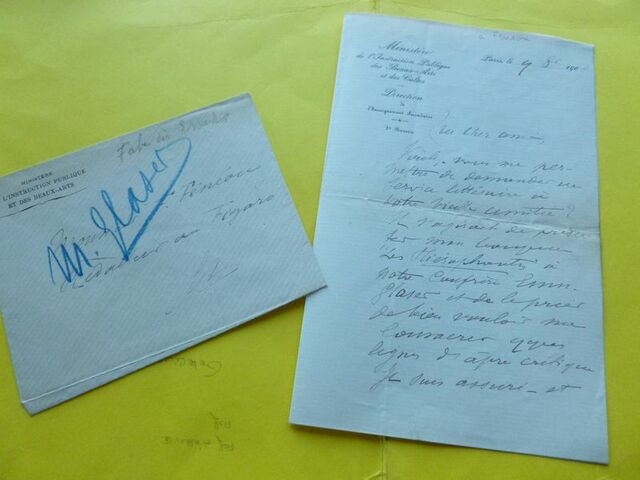 Fabre des Essarts
MINISTÈRE
DE L'INSTRUCTION PUBLIQUE
ET DES BEAUX-ARTS
M. Glaser
Rédacteur au Figaro
Ministère
de l'Instruction Publique
des Beaux-Arts
et des Cultes
Direction
de
l'Enseignement Secondaire
Paris, le 19 190
Mon cher ami,
Voulez-vous me per-
mettre de demander un
service littéraire à
votre vieille amitié ?
Il s'agirait de présen
ter mon bouquin
Les Hiérophantes à
notre confrère Emm.
Glaser et de le prier
de bien vouloir me
consacrer qques
lignes d'âpre critique
Je suis assuré et